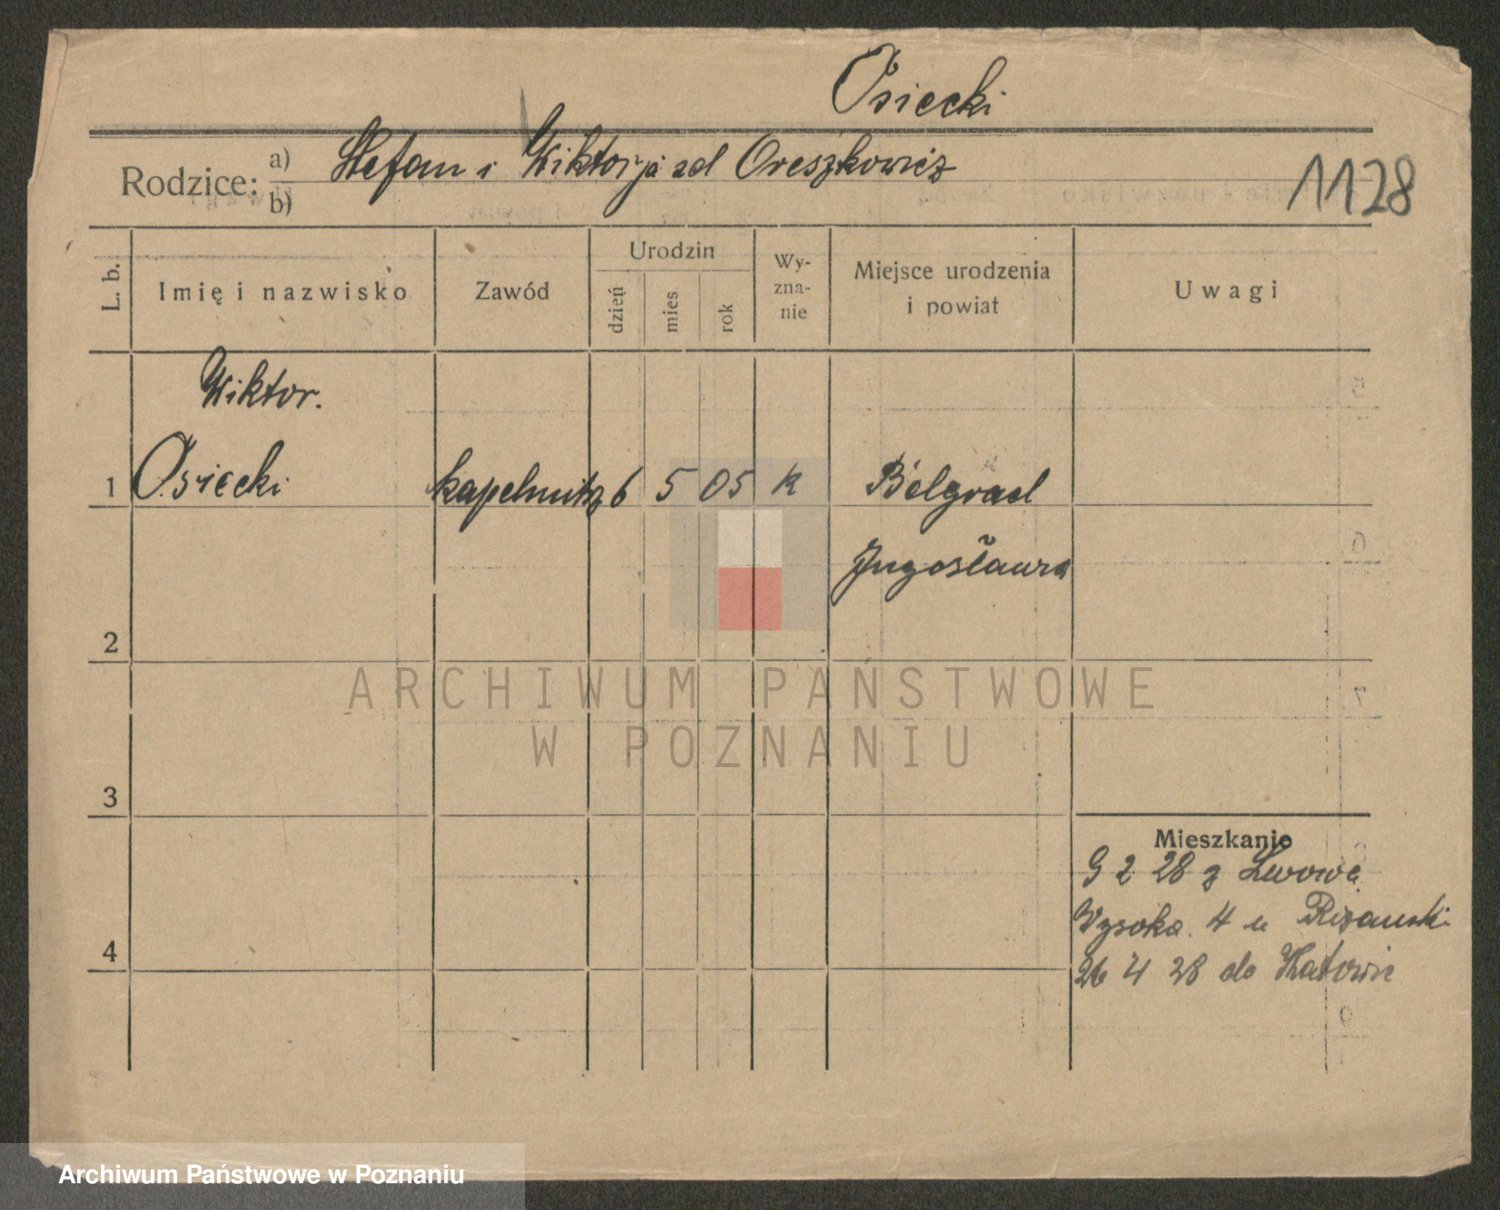 Osiecki
Rodzice: a) Stefan i Wiktorja zd Oreszkowicz
b)
1128
L. b.
Imię i nazwisko
Zawód
Urodzin
dzień
mies
rok
Wy-
zna-
nie
Miejsce urodzenia
i powiat
Uwagi
Wiktor.
1 Osiecki kapelmistrz 6 5 05 K Belgrad
Jugosławia
2
ARCHIWUM PAŃSTWOWE
W POZNANIU
3
Mieszkanie
9 2 28 z Lwowa
Wysoka 4 u
4
26 4 28 do Katowic
Archiwum Państwowe w Poznaniu